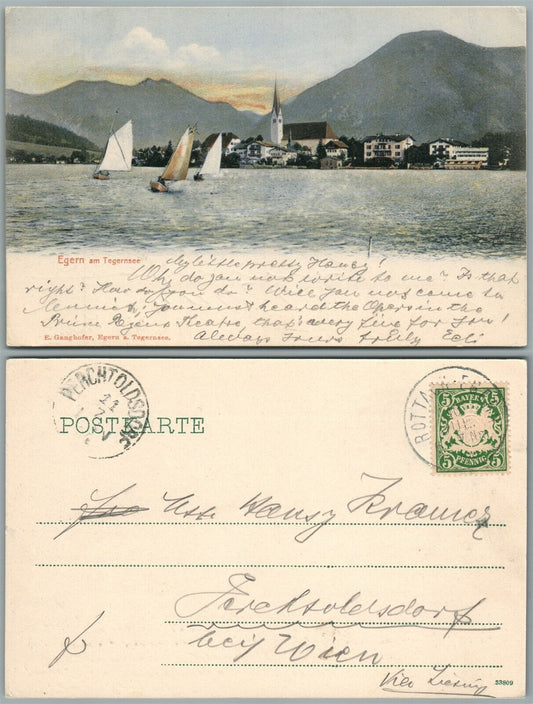 Egern am Tegernsee
My little pretty Hansy!
Why do you not write to me? Is that
right? How do you do? Will you not come to
Munich, you must heard the Opera in the
Prinz theatre that's very fine for you!
E. Ganghofer, Egern a. Tegernsee.
Always Yours
PERCHTOLDSDORF
21
7
POSTKARTE
ROTTACH
BAYERN
5 5
PFENNIG
Hansy Kramer
Perchtoldsdorf
bey Wien
Via Liesing
23809